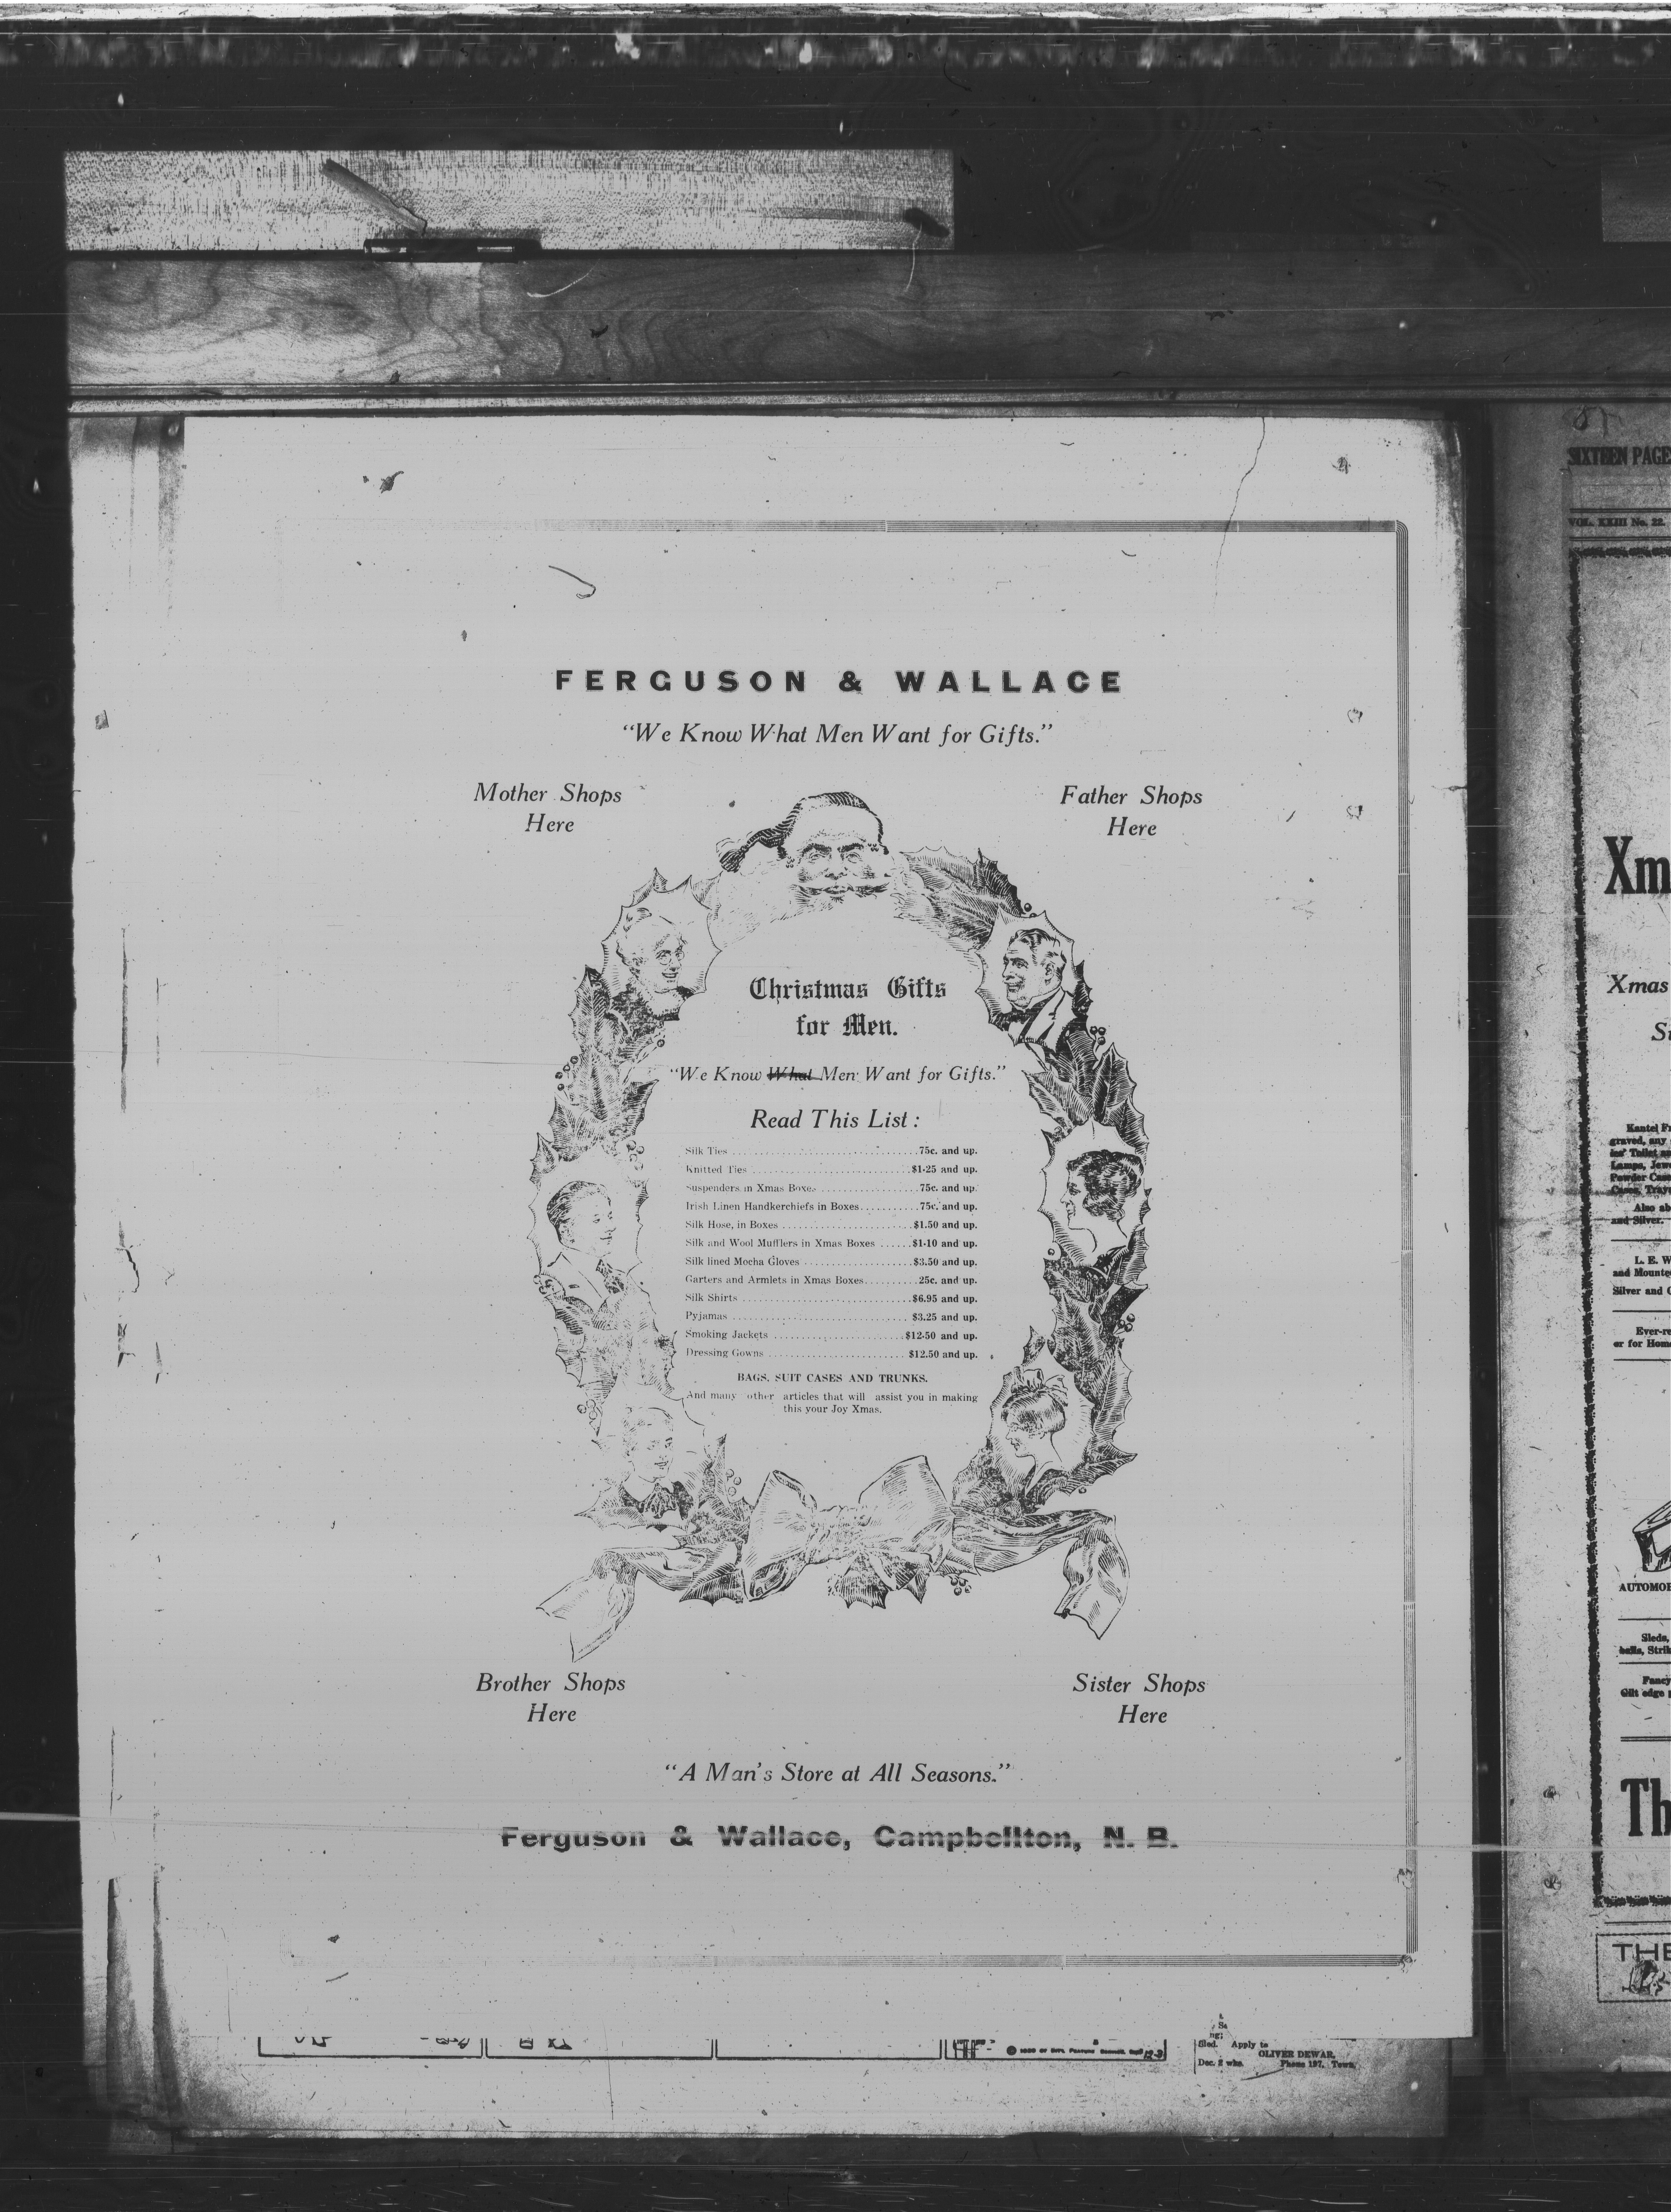 FERGUSON & WALLACE
"We Know What Men Want for Gifts."
Mother Shops
Here
Father Shops
Here
Christmas Gifts
for Men.
"We Know What Men Want for Gifts."
Read This List :
Silk Ties ........................................75c. and up.
Knitted Ties ..................................$1.25 and up.
Suspenders in Xmas Boxes ..................75c. and up.
Irish Linen Handkerchiefs in Boxes...........75c. and up.
Silk Hose, in Boxes ...........................$1.50 and up.
Silk and Wool Mufflers in Xmas Boxes ......$1.10 and up.
Silk lined Mocha Gloves .......................$3.50 and up.
Garters and Armlets in Xmas Boxes...........25c. and up.
Silk Shirts ....................................$6.95 and up.
Pyjamas ......................................$3.25 and up.
Smoking Jackets ...........................$12.50 and up.
Dressing Gowns ............................$12.50 and up.
BAGS, SUIT CASES AND TRUNKS.
And many other articles that will assist you in making
this your Joy Xmas.
Brother Shops
Here
Sister Shops
Here
"A Man's Store at All Seasons."
Ferguson & Wallace, Campbellton, N. B.
filed. Apply to
OLIVER DEWAR,
Dec. 2 wks. Phone 197. Town.
SIXTEEN PAGES
VOL. XXIII No. 22.
Xm
Xmas
graved, any
Lamps, Jew
Powder Cas
Also ab
and Silver.
L. E. W
and Mounte
Silver and
Ever-re
er for Hom
AUTOMOB
Sleds,
Fancy
Gilt edge
Th
THE